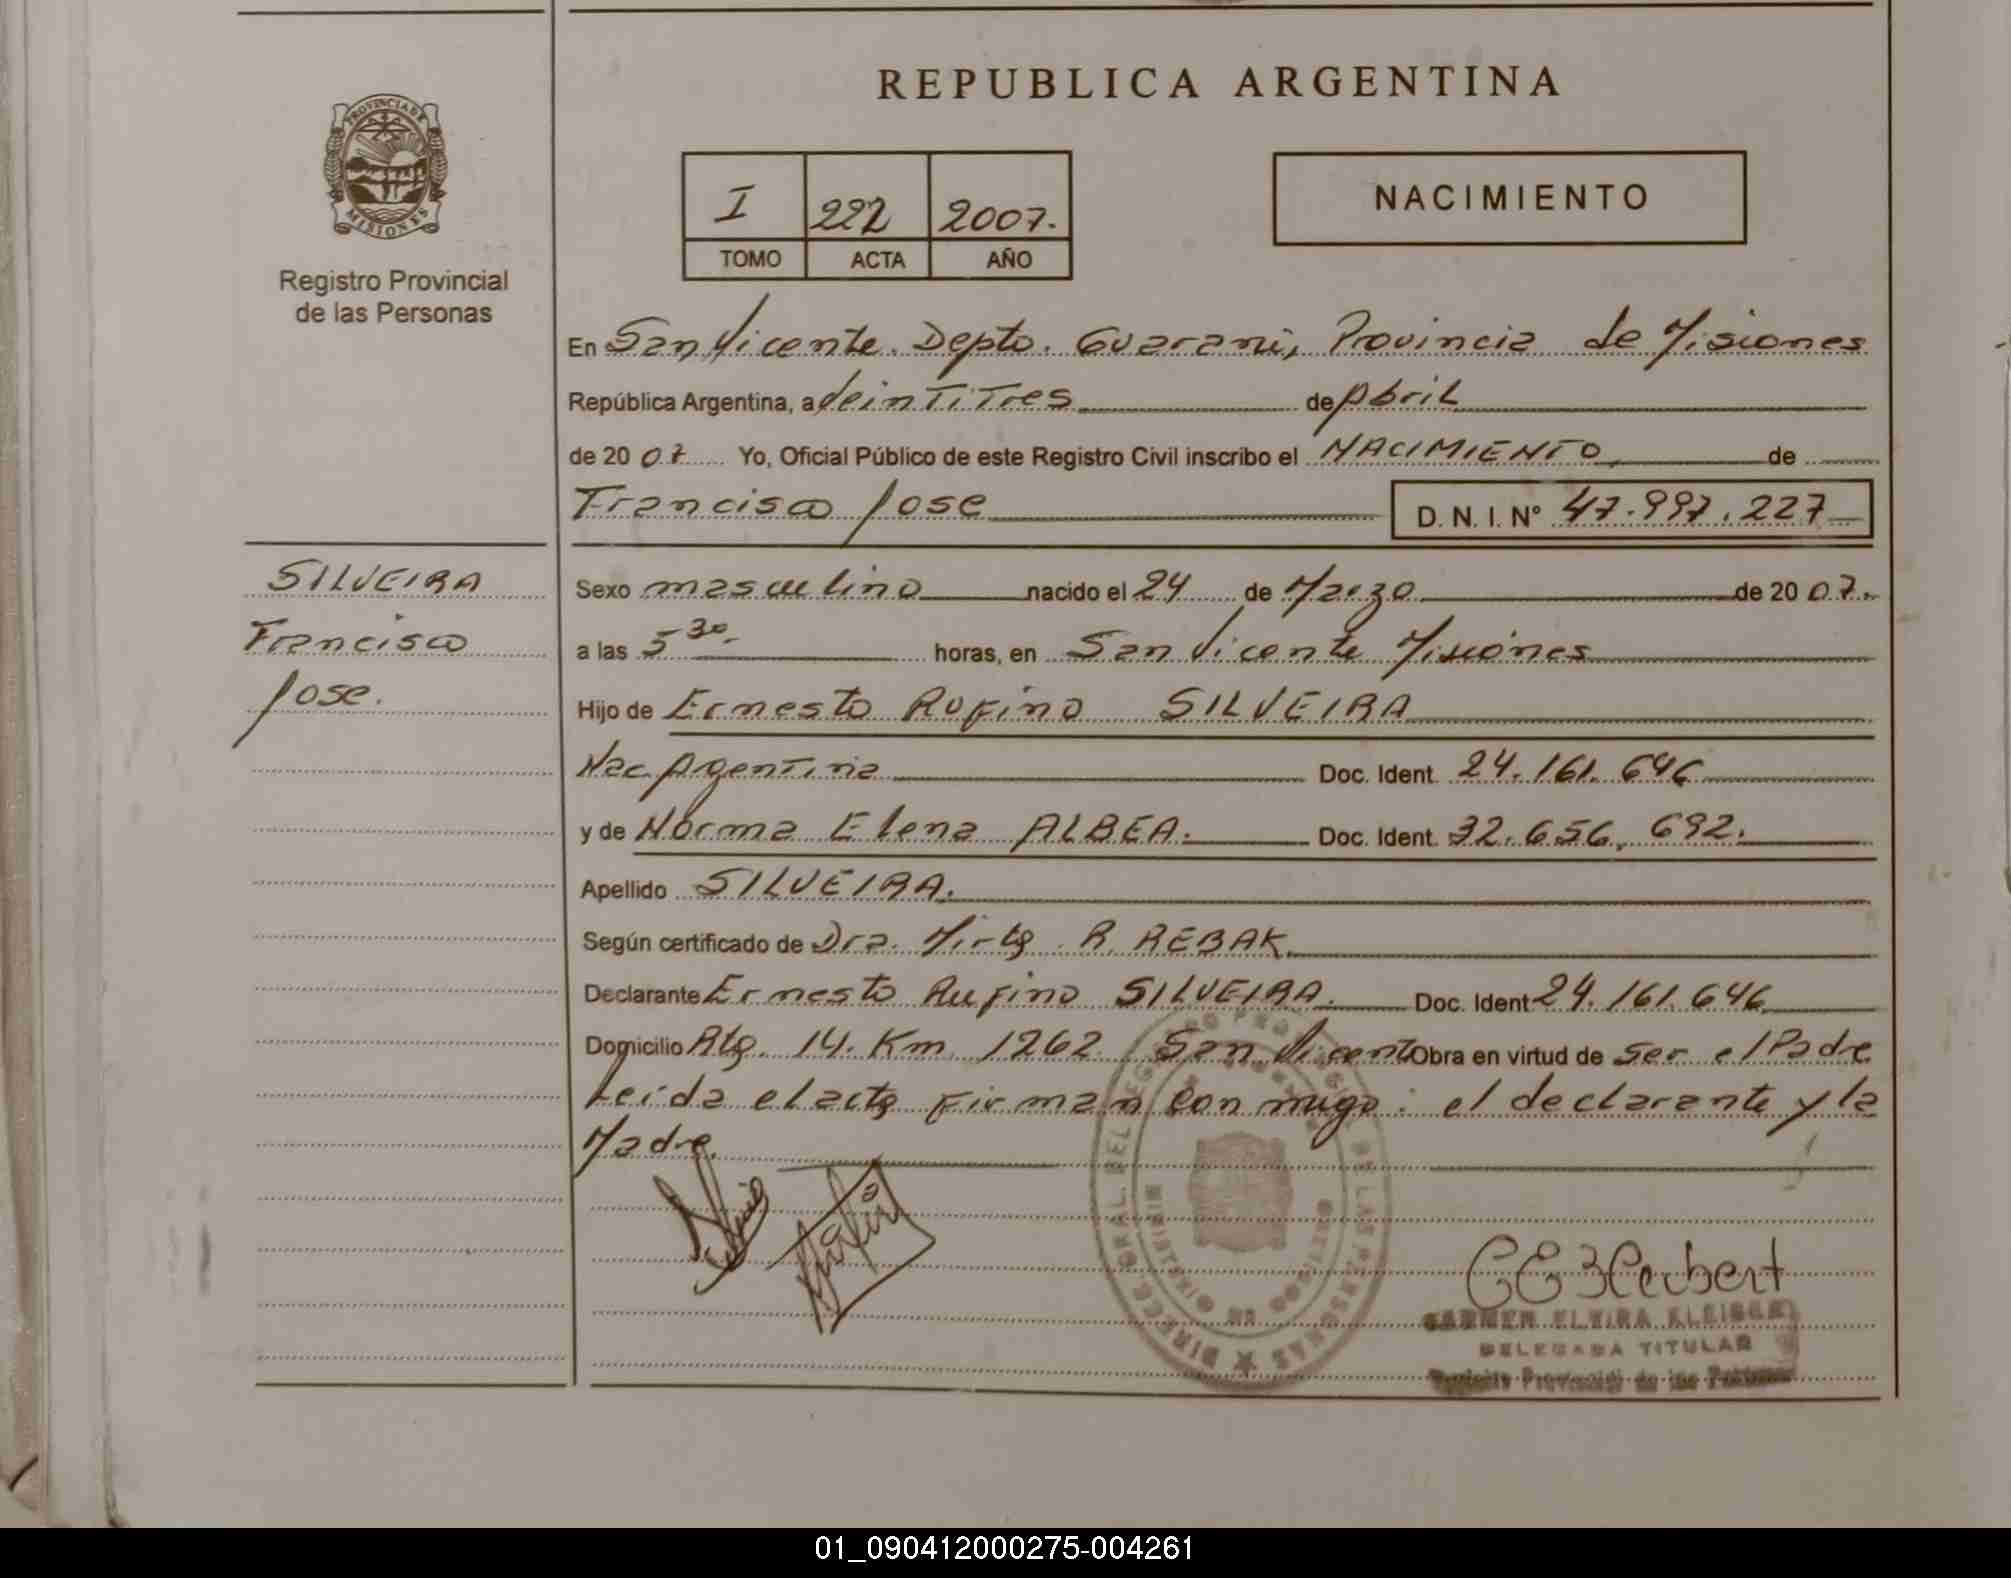 REPUBLICA ARGENTINA
PROVINCIA DE MISIONES
Registro Provincial
de las Personas
I 222 2007.
TOMO ACTA AÑO
NACIMIENTO
En San Vicente. Depto. Guarani, Provincia de Misiones
República Argentina, a Veintitres de Abril
de 20 07 Yo, Oficial Público de este Registro Civil inscribo el NACIMIENTO de
Francisco Jose D. N. I. Nº 47.997.227
SILVEIRA
Francisco
Jose.
Sexo masculino nacido el 24 de Marzo de 20 07.
a las 5 30. horas, en San Vicente Misiones
Hijo de Ernesto Rufino SILVEIRA
Nac. Argentina Doc. Ident. 24.161.646
y de Norma Elena ALBEA. Doc. Ident. 32.656.692.
Apellido SILVEIRA.
Según certificado de Dra. Mirta R. REBAK
Declarante Ernesto Rufino SILVEIRA. Doc. Ident 24.161.646
Domicilio Rta. 14. Km 1262 San Vicente Obra en virtud de ser el Padre
Leida el acta firman con migo: el declarante y la
Madre.
DIRECC. GRAL. DEL REGISTRO PROVINCIAL DE LAS PERSONAS
MINISTERIO DE GOBIERNO
CARMEN ELVIRA
DELEGADA TITULAR
Registro Provincial de las Personas
01_090412000275-004261